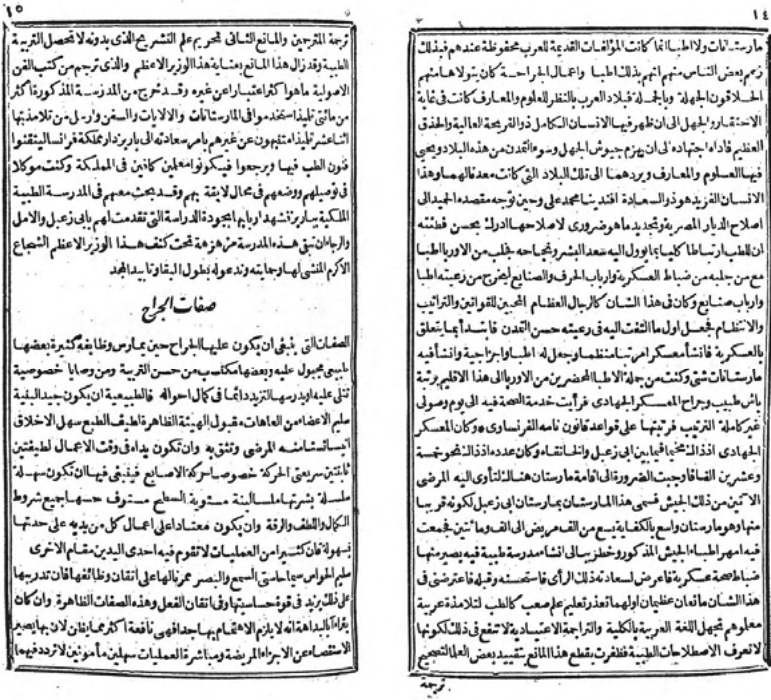 ١٤
مارستانات ولا اطبا انما كانت المؤلفات القديمة للعرب محفوظة عندهم فبذلك
زعم بعض الناس منهم انهم بذلك اطبا واعمال الجراحة كان يتولاها منهم
الحلاقون الجهلة وبالجملة فبلاد العرب بالنظر للعلوم والمعارف كانت في غاية
الاحتقار والجهل الى ان ظهر فيها الانسان الكامل ذو القريحة العالية والحذق
العظيم فاداه اجتهاده الى ان يهزم جيوش الجهل وسوء التمدن من هذه البلاد ويحيى
فيها العلوم والمعارف ويردهما الى تلك البلاد التي كانت معدنا لهما وهذا
الانسان الغزيز هو ذو السعادة افندينا محمد على وحين توجه مقصده الحميد الى
اصلاح الديار المصرية وتجديد ما هو ضروري لاصلاحها ادرك بحسن فطنته
ان للطب ارتباطا كليا بما يوول اليه سعد البشر ونجاحه فجلب من الاوربا اطبا
مع من جلبه من ضباط العسكرية وارباب الحرف والصنايع ليخرج من رعيته اطبا
وارباب صنايع وكان في هذا الشان كالرجال العظام المحبين للقوانين والتراتيب
والانتظام فجعل اول ما التفت اليه في رعيته حسن التمدن فاشدأ بما يتعلق
بالعسكرية فانشأ معسكرا مرتبا منتظما وجعل له اطبا واجزاجية وانشأ فيه
مارستانات شتى وكنت من جملة الاطبا المحضرين من الاوربا الى هذا الاقليم برتبة
باش طبيب وجراح المعسكر الجهادى فرأيت خدمة الصحة فيه الى يوم وصولى
غير كاملة الترتيب فرتبتها على قواعد قانون نامه الفرنساوى وكان المعسكر
الجهادى اذ ذاك مخيما فيما بين ابى زعبل والخانقاه وكان عدده اذ ذاك نحو خمسة
وعشرين الفا فاوجبت الضرورة الى اقامة مارستان هناك لتأوى اليه المرضى
الاتين من ذلك الجيش فسمى هذا المارستان بمارستان ابى زعبل لكونه قريبا
منها وهو مارستان واسع بالكفاية يسع من الف مريض الى الف ومأتين فجمعت
فيه امهر اطباء الجيش المذكور وخطر ببالى انشاء مدرسة طبية فيه يصير منها
ضباط صحة عسكرية فاعرض لسعادته ذلك الرأى فاستحسنه وقبله فاعترضنى فى
هذا الشان مانعان عظيمان اولهما تعذر تعليم علم صعب كالطب لتلامذة عربية
معلوهم بجهل اللغة العربية بالكلية والتراجمة الاعتيادية لا تنفع فى ذلك لكونها
لا تعرف الاصطلاحات الطبية فظفرت بقطع هذا المانع بتقييد بعض العلما لتصحيح
ترجمة
١٥
ترجمة المترجمين والمانع الثانى تحريم علم التشريح الذى بدونه لا تحصل التربية
الطبية وقد زال هذا المانع بعناية هذا الوزير الاعظم والذى ترجم من كتب الفن
الاصولية ما هو اكثر اعتبارا عن غيره وقد تخرج من المدرسة المذكورة اكثر
من مائتى تلميذ استخدموا فى المارستانات والالايات والسفن وارسل من تلامذتها
اثنا عشر تلميذا متقنين عن غيرهم بامر سعادته الى باريز دار مملكة فرانسا ليتقنوا
فنون الطب فيها ويرجعوا فيكونوا معلمين كافين فى المملكة وكنت موكلا
فى توصيلهم ووضعهم فى محال لايقة بهم وقد بحث معهم فى المدرسة الطبية
الملكية بباريز فشهد اربابها بجودة الدراسة التى تقدمت لهم بابى زعبل والامل
والرجا ان تبقى هذه المدرسة مزهزهة تحت كنف هذا الوزير الاعظم الشجاع
الاكرم المنشى لها وحمايته وندعو له بطول البقا وتأييد المجد
صفات الجراح
الصفات التى ينبغى ان يكون عليها الجراح حين يمارس وظايفه كثيرة بعضها
طبيعى مجبول عليه وبعضها مكتسب من حسن التربية ومن وصايا خصوصية
تتلى عليه او يدرسها لتزيد دايما فى كمال احواله فالطبيعية ان يكون جيد البنية
سليم الاعضاء من العاهات مقبول الهيئة الظاهرة لطيف الطبع سهل الاخلاق
لتستانسه المرضى وتثق به وان تكون يداه فى وقت الاعمال لطيفتين
ثابتتين سريعتى الحركة خصوصا حركة الاصابع فينبغى فيها ان تكون سهلة
سلسلة بشرتها ملسا لينة مستوية السطح مستوف حسها جميع شروط
الكمال واللطف والرقة وان يكون معتادا على اعمال كل من يديه على حدتها
بسهولة فان كثيرا من العمليات لا تقوم فيه احدى اليدين مقام الاخرى
سليم الحواس سيما حاستى السمع والبصر ممرنا لها على اتقان وظائفها فان تدريبها
على ذلك يزيد فى قوة حساسيتها وفى اتقان الفعل وهذه الصفات الظاهرة وان كان
يتراءا بالبداهة انه لا يلزم الاهتمام بها جدا فهى نافعة اكثر مما يظن لان بها يصير
الاستقصاء عن الاجزاء المريضة ومباشرة العمليات سهلين مأمونين لا تردد فيهما